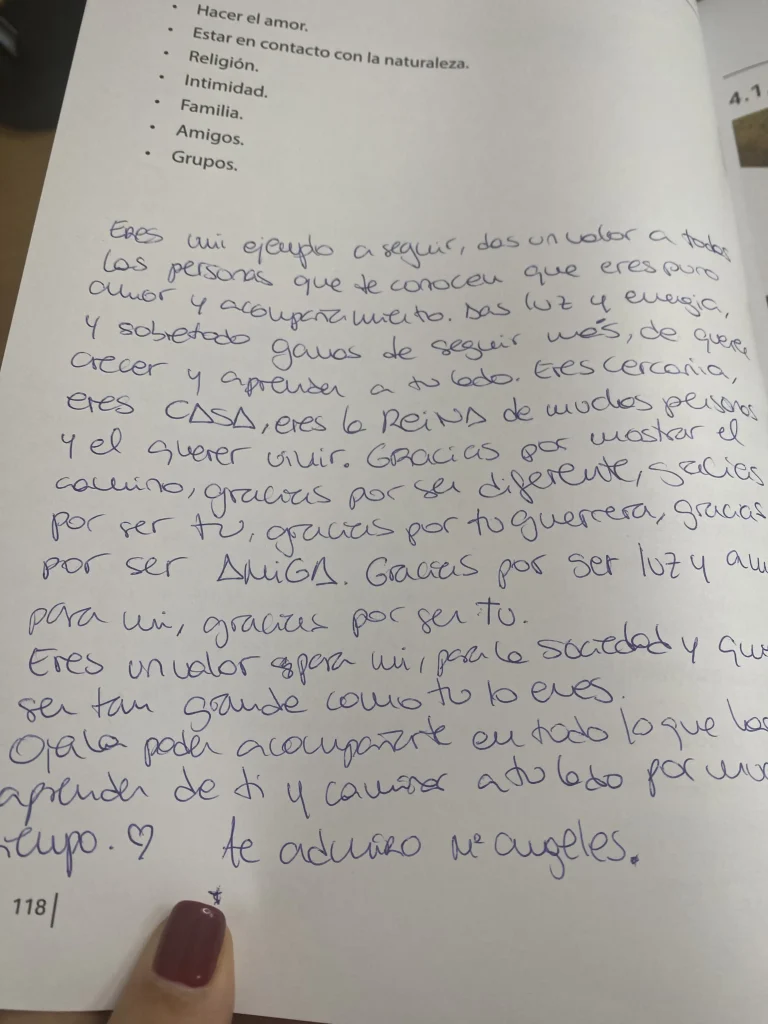 • Hacer el amor.
• Estar en contacto con la naturaleza.
• Religión.
• Intimidad.
• Familia.
• Amigos.
• Grupos.
4.1.
Eres mi ejemplo a seguir, das un valor a todas
las personas que te conocen que eres puro
amor y acompañamiento. Das luz y energia,
y sobretodo ganas de seguir más, de querer
crecer y aprender a tu lado. Eres cercania,
eres CASA, eres la REINA de muchas personas
y el querer vivir. Gracias por mostrar el
camino, gracias por ser diferente, gracias
por ser tú, gracias por tu guerrera, gracias
por ser AMIGA. Gracias por ser luz y
para mi, gracias por ser tu.
Eres un valor para mi, para la sociedad y
ser tan grande como tu lo eres.
Ojala poder acompañarte en todo lo que
aprender de ti y caminar a tu lado por
tiempo. ♡ te admiro Mª angeles.
118